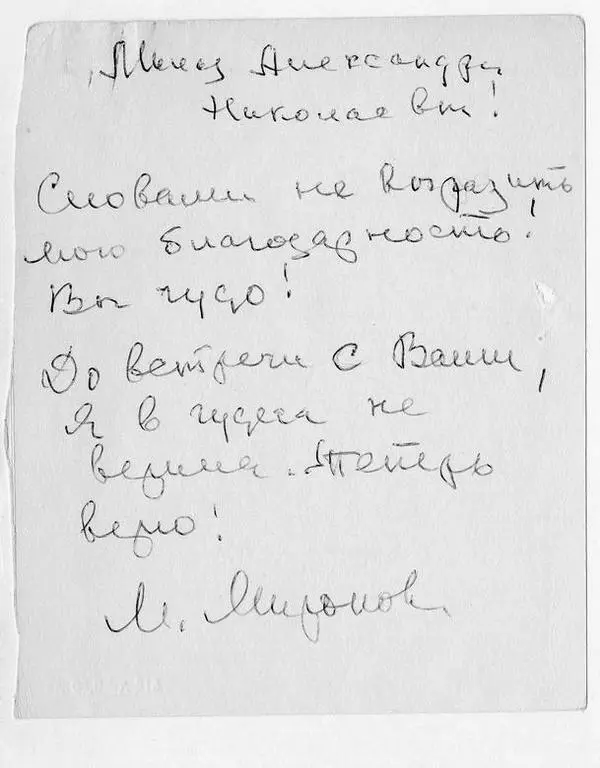 Милая Александра
Николаевна!
Словами не выразить
мою благодарность!
Вы чудо!
До встречи с Вами,
Я в чудеса не
верила. Теперь
верю!
М. Миронова